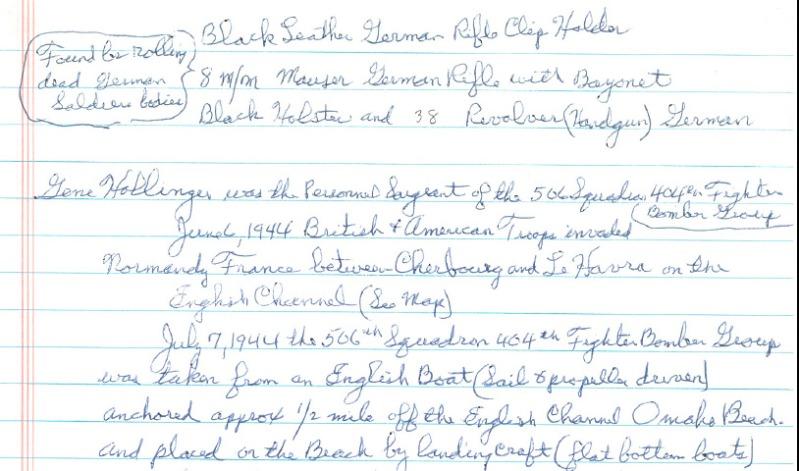 Black Leather German Rifle Clip Holder
Found be rolling
dead German
Soldiers bodies
8 m/m Mauser German Rifle with Bayonet
Black Holster and 38 Revolver (Handgun) German
Gene Hollinger was the Personnel Sargeant of the 506 Squadron 404th Fighter
Bomber Group
June 6, 1944 British & American Troops invaded
Normandy France between Cherbourg and Le Havra on the
English Channel (See Map)
July 7, 1944 the 506th Squadron 404th Fighter Bomber Group
was taken from an English Boat (Sail & propeller driven)
anchored approx 1/2 mile off the English Channel Omaha Beach.
and placed on the Beach by landing craft (flat bottom boats)